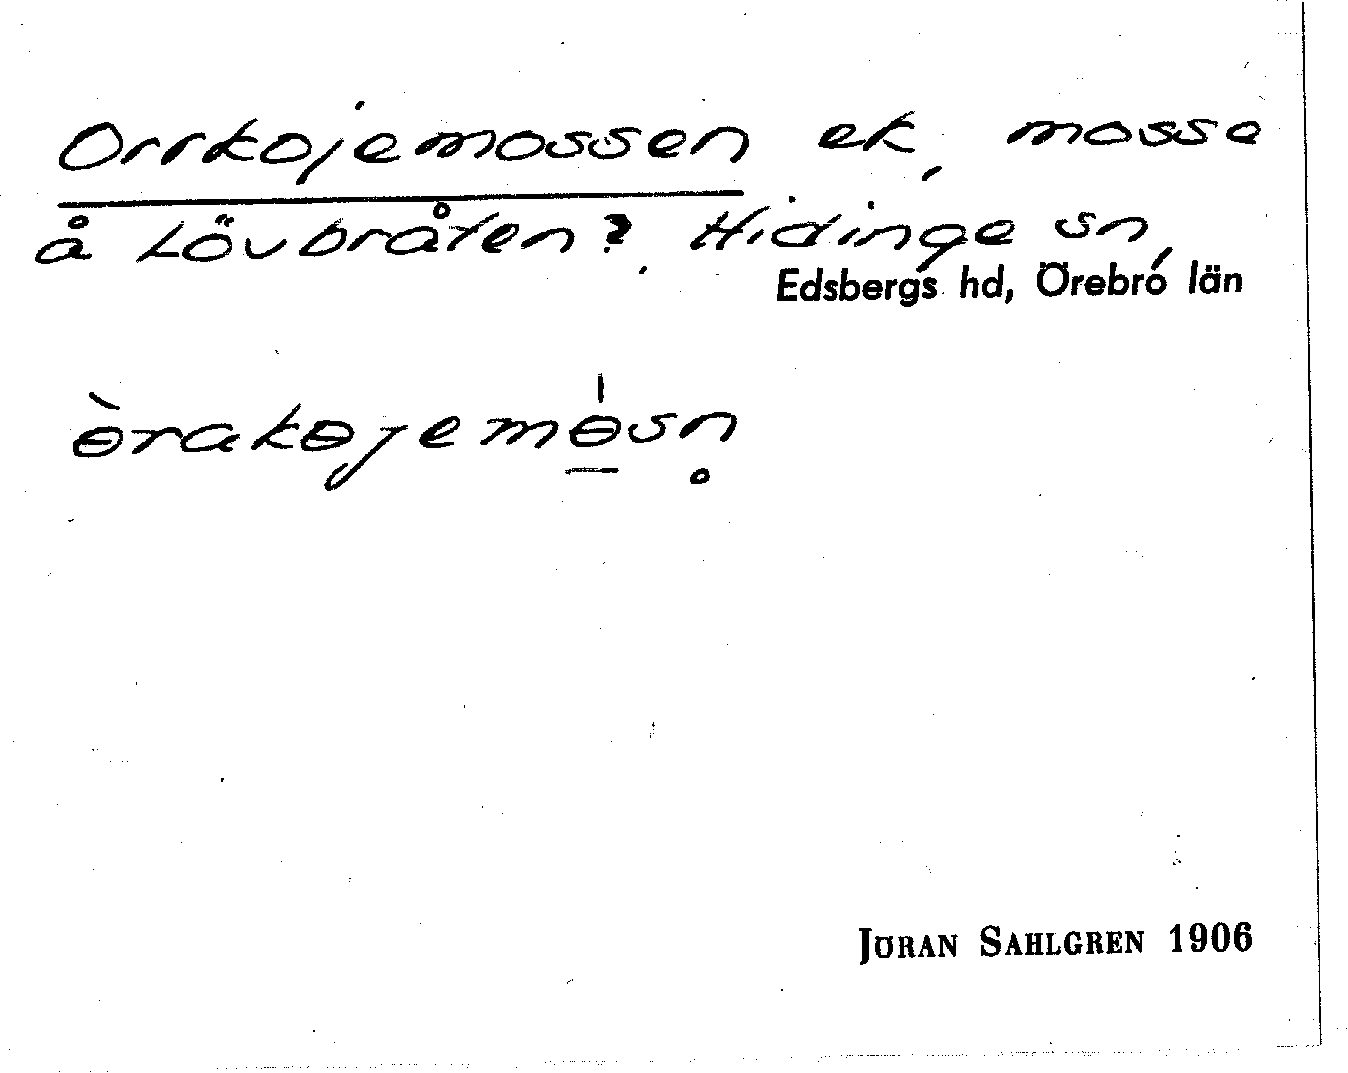 Orrkojemossen ek, mosse
å Lövbråten?, Hidinge sn,
Edsbergs hd, Örebro län
ɵ̀rakɵjemɵ̍sn̥
JÖRAN SAHLGREN 1906